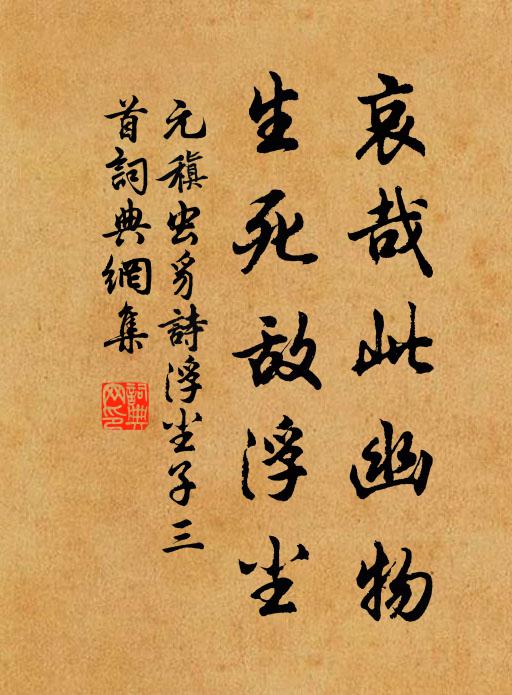 哀哉此幽物
生死敌浮尘
元稹虫豸詩浮尘子三
首詞典網集
詞典
网印